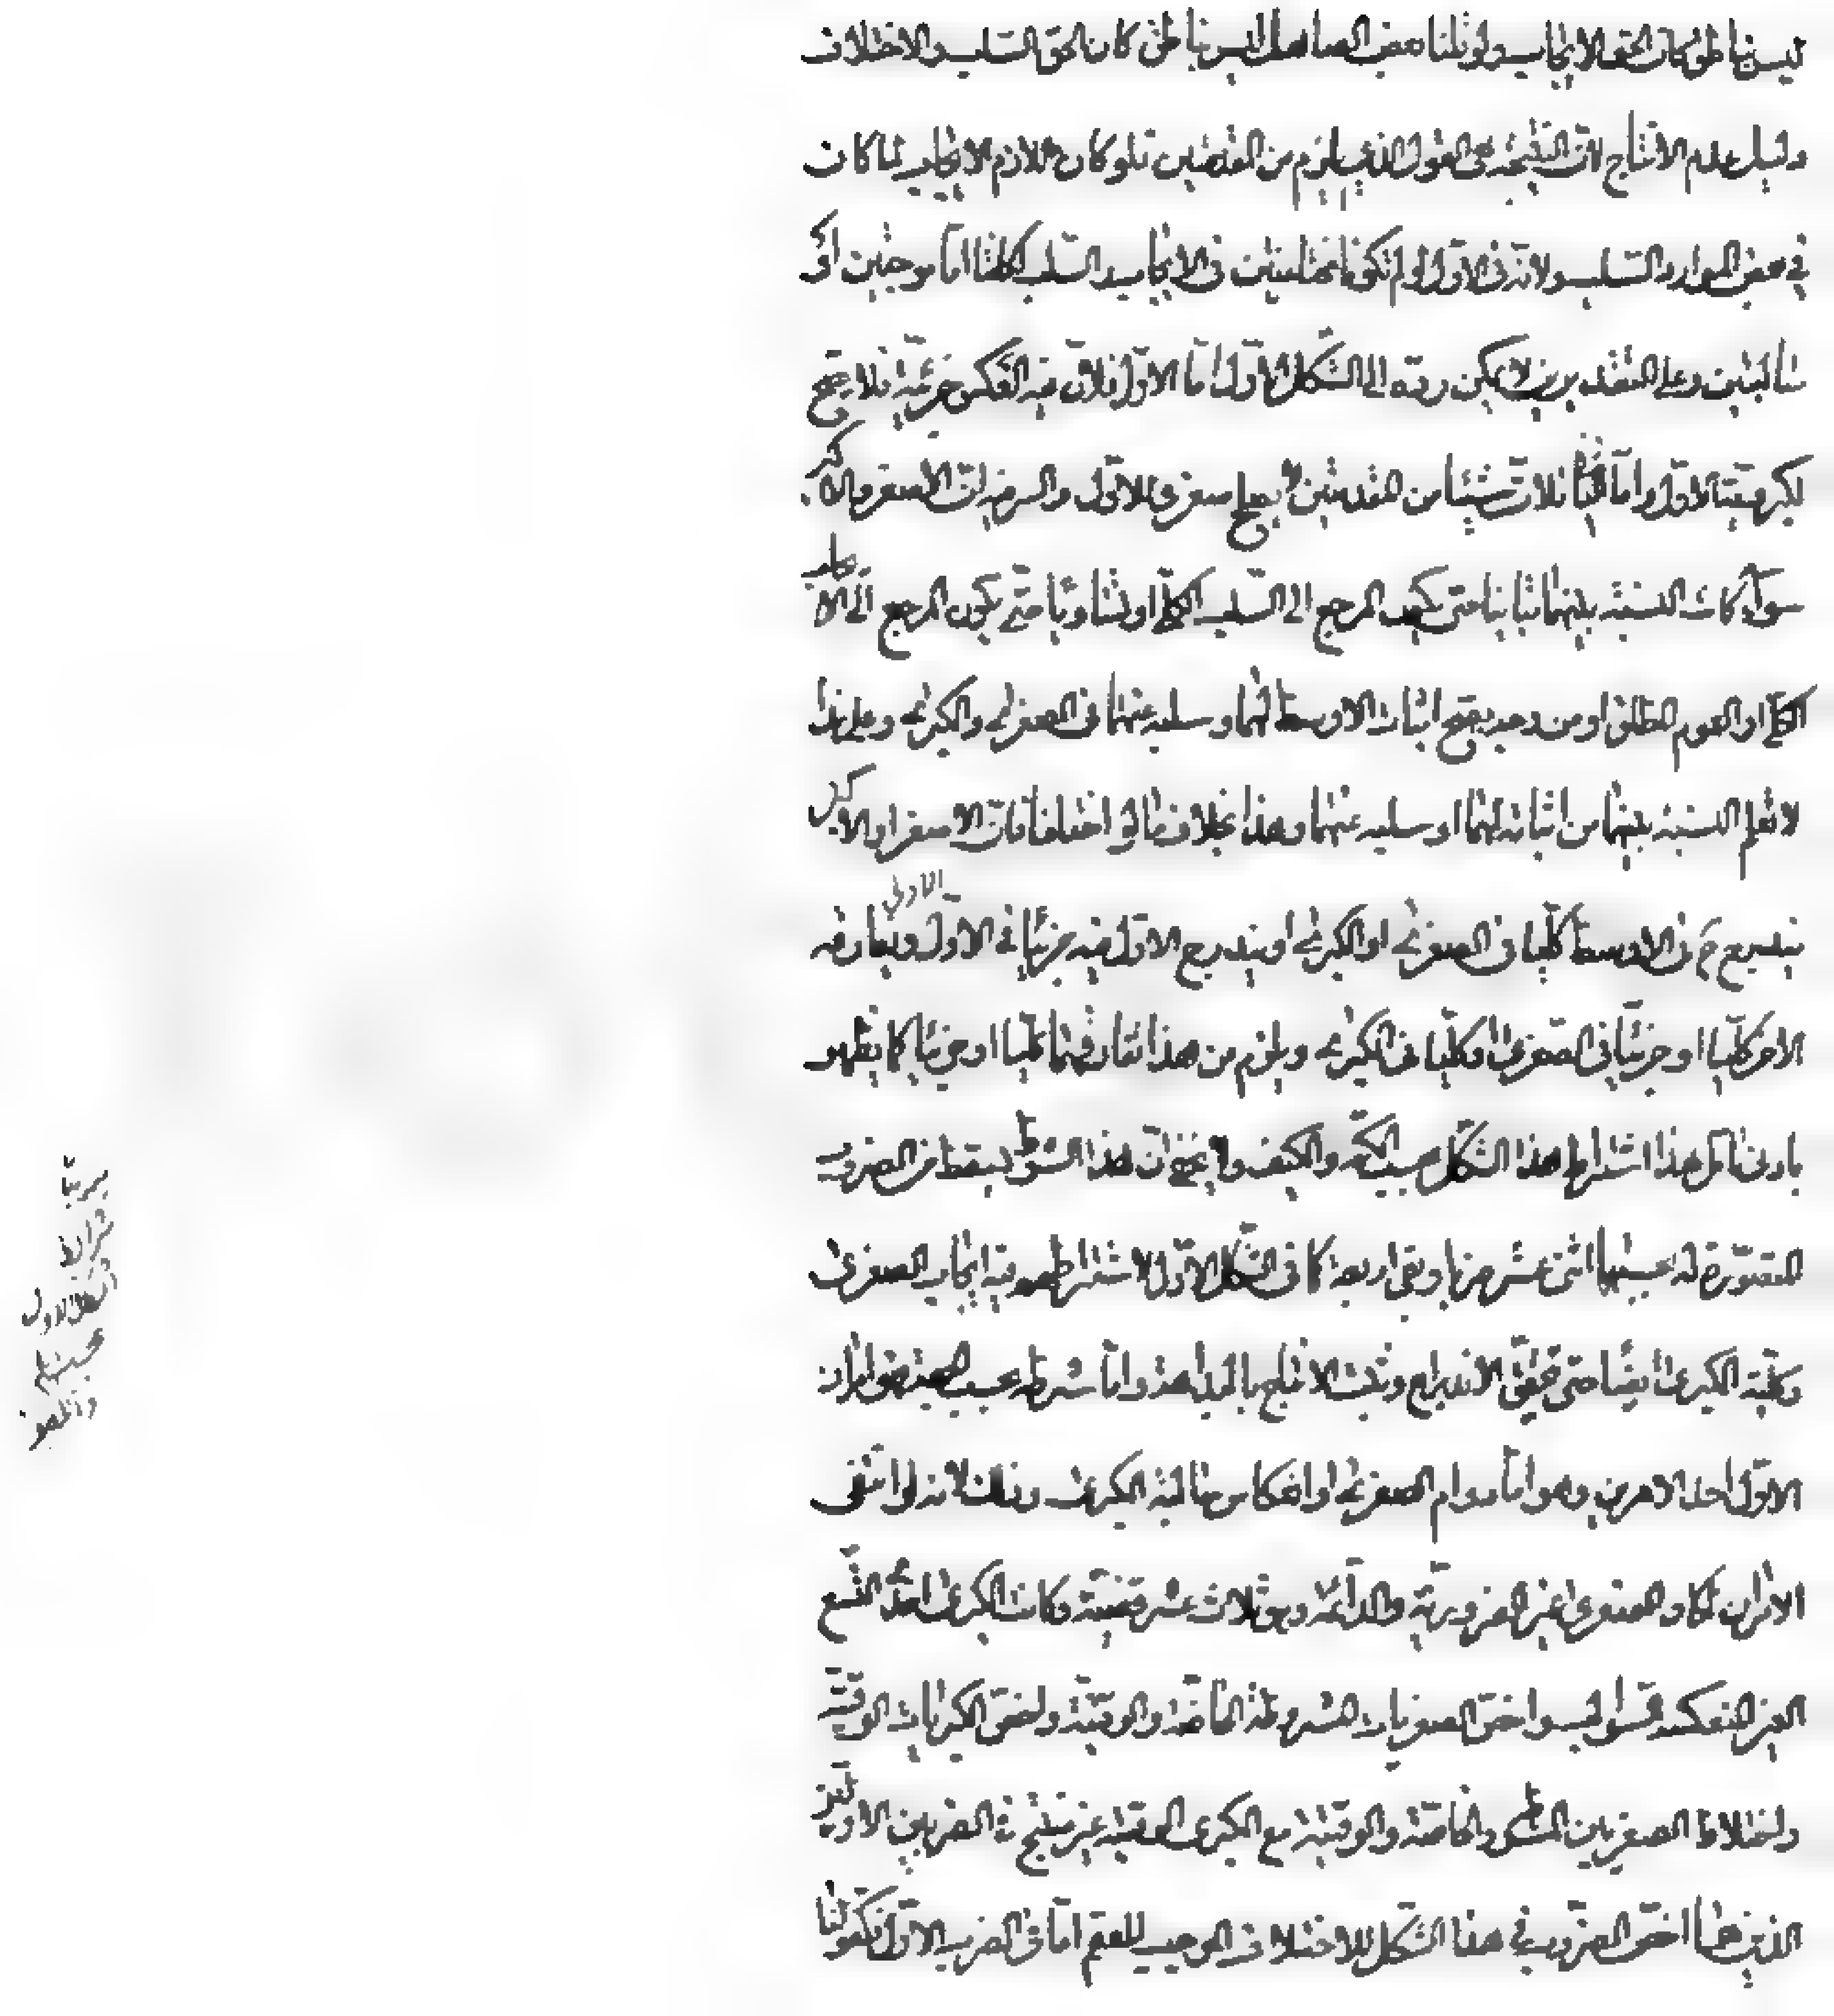 ليس بناطق كان الحق الايجاب ولو قلنا بعض الصاهل ليس بناطق كان الحق السلب والاختلاف
دليل عدم الانتاج لان النتيجة هى القول الذي يلزم من المقدمتين فلو كان اللازم الايجاب لما كان
في بعض الموارد السلب ولانه فى الاول لو لم تكونا مختلفتين فى الايجاب والسلب لكانتا اما موجبتين او
سالبتين وعلى التقديرين لا يمكن رده الى الشكل الاول اما الاول فلان فيه انعكس جزئية فلا يصح
لكبروية الاول واما الثانى فلان شيئا من المقدمتين لا يصلح صغرى للاول والسر فيه ان الاصغر والاكبر
سواء كانت النسبة بينهما تباينا حتى يكون المرجع الى السلب الكلى او تساويا حتى يكون المرجع الى الايجاب
الكلى او العموم المطلق او من وجه يصح اثبات الاوسط لهما وسلبه عنهما فى الصغرى والكبرى وعلى هذا
لا نعلم النسبة بينهما من اثباته لهما او سلبه عنهما وهذا بخلاف ما لو اختلفتا فان الاصغر او الاكبر
يندرج ح فى الاوسط كليا فى الصغرى او الكبرى او يندرج الاول فيه جزئيا فى الاولى ويفارقه
الاخر كليا او جزئيا فى الصغرى او كليا فى الكبرى ويلزم من هذا تفارقهما كليا او جزئيا كما يظهر
بادنى تامل هذا اشتراط هذا الشكل بحسب الكم والكيف ولا يخفى ان هذا الشرط يسقط من الضروب
المتصورة له بحسبهما اثنى عشر ضربا وبقى اربعة كما فى الشكل الاول لاشتراطهم فيه ايجاب الصغرى
وكلية الكبرى ايضا حتى يتحقق الاندراج ويثبت الانتاج بالبداهة واما شرطه بحسب الجهة فهو امران
الاول احد الامرين وهو اما دوام الصغرى او انعكاس سالبة الكبرى وذلك لانه لو انتفى
الامران لكان الصغرى غير الضرورية والدائمة وهى ثلاث عشر قضية وكانت الكبرى احدى التسع
الغير المنعكسة السوالب واخص الصغريات المشروطة الخاصة والوقتية واخص الكبريات الوقتية
واختلاط الصغريين المشروطة الخاصة والوقتية مع الكبرى الوقتية غير منتج فى الضربين الاولين
الذين هما اخص الضروب فى هذا الشكل للاختلاف الموجب للعقم اما فى الضرب الاول فكقولنا
شرايط
الشكل الاول